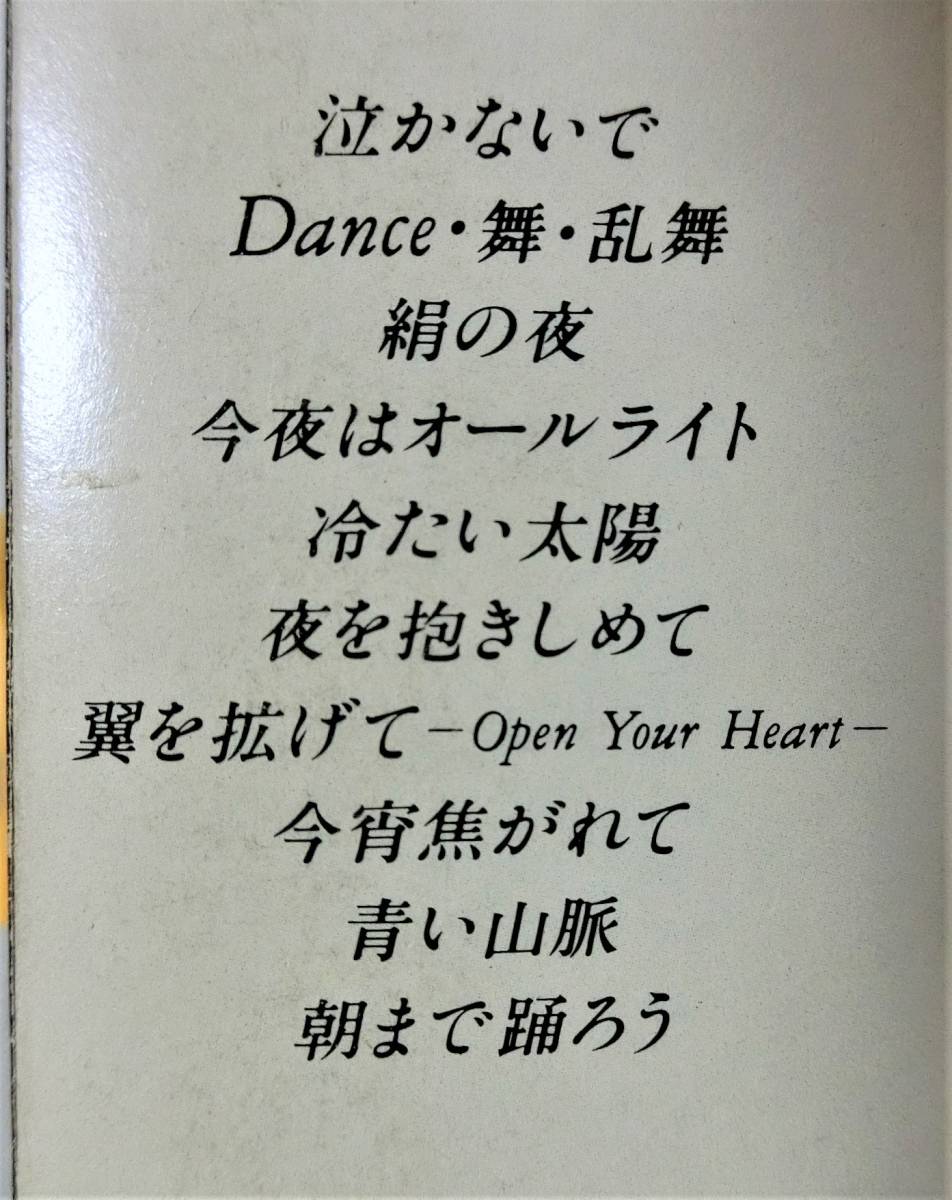 泣かないで
Dance・舞・乱舞
絹の夜
今夜はオールライト
冷たい太陽
夜を抱きしめて
翼を拡げて－Open Your Heart－
今宵焦がれて
青い山脈
朝まで踊ろう